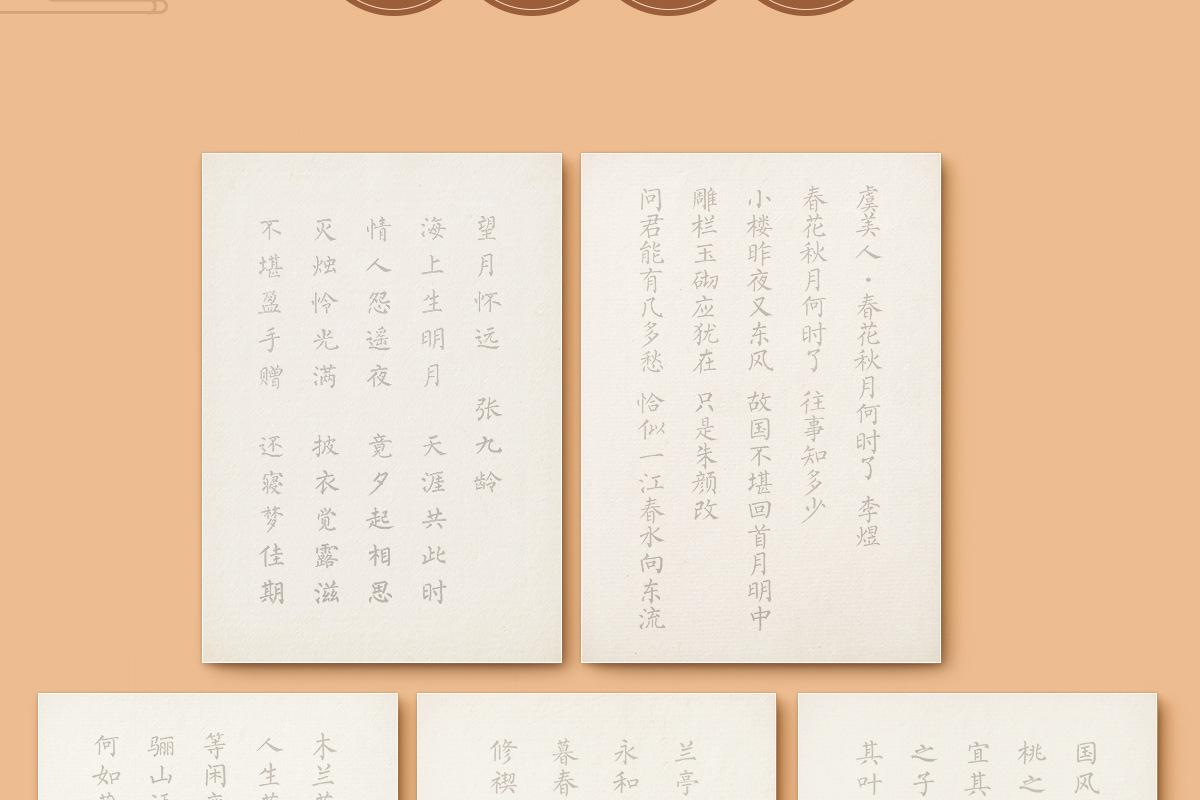 望月怀远 张九龄
海上生明月 天涯共此时
情人怨遥夜 竟夕起相思
灭烛怜光满 披衣觉露滋
不堪盈手赠 还寝梦佳期
虞美人·春花秋月何时了 李煜
春花秋月何时了 往事知多少
小楼昨夜又东风 故国不堪回首月明中
雕栏玉砌应犹在 只是朱颜改
问君能有几多愁 恰似一江春水向东流
木兰
人生
等闲
骊山
何如
兰亭
永和
暮春
修禊
国风
桃之
宜其
之子
其叶